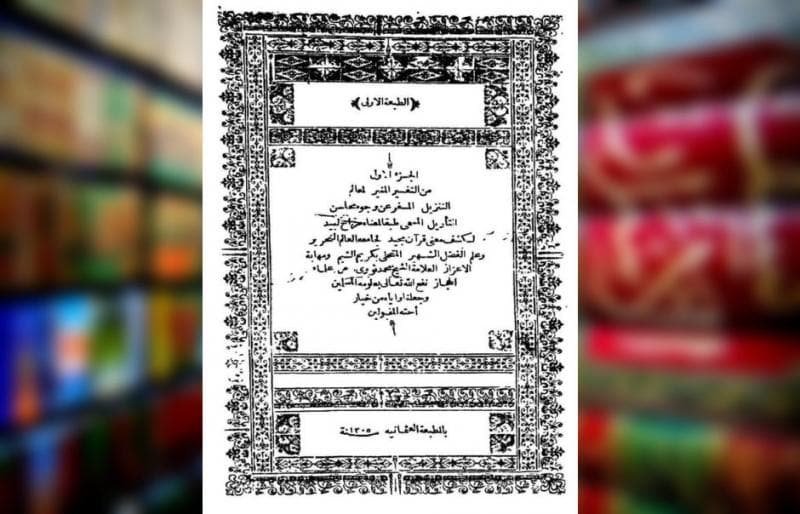 ﴿الطبعة الاولى﴾
الجزء الاول
من التفسير المنير لمعالم
التنزيل المسفر عن وجوه محاسن
التأويل المسمى طبقا لمعناه مراح لبيد
لكشف معنى قرآن مجيد لجامعه العالم النحرير
وعلم الفضل الشهير المتحلى بكريم الشيم ومهابة
الاعزاز العلامة الشيخ محمد نووى من علماء
الحجاز نفع الله تعالى بعلومه المسلمين
وجعلنا واياه من خيار
أمته المقبولين
بالمطبعة العثمانيه سنة ١٣٠٥